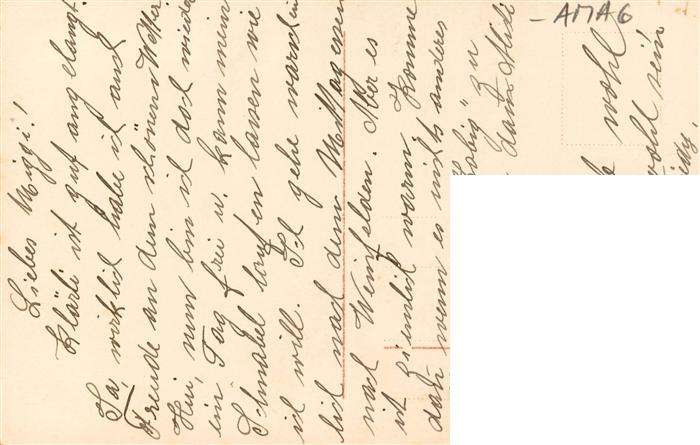 Liebes Muggi!
Klärli ist gut angelangt.
Ja, wirklich habe ich auch
Freude an dem schönen Wetter
Hin, nun bin ich doch wieder
ein Tag frei u. kann mein
Schnabel laufen lassen wie
ich will. Ich gehe warschein
lich nach dem Mittagessen
nach Weinfelden. Aber es
ist ziemlich warm. Komme
dah wenn es nichts anderes
zu
damit
wohl
wohl sein
- AMAG